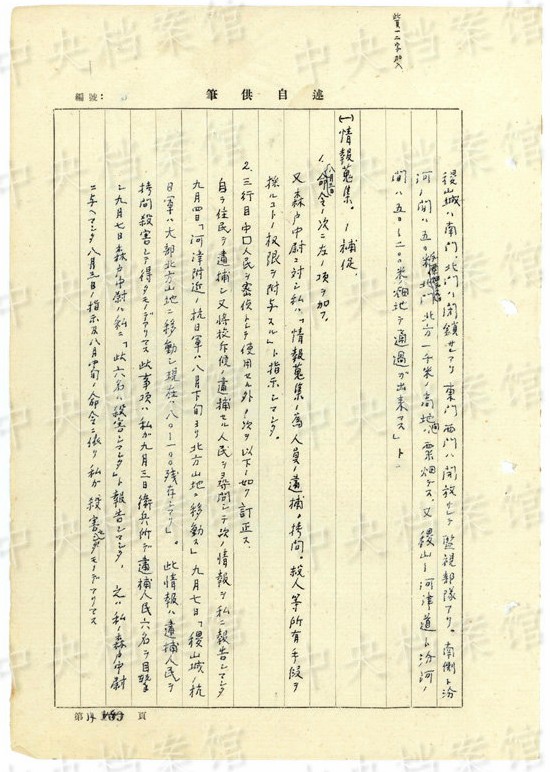 筆供自述
編號：
稷山城ハ南門、北門ハ閉鎖セラレ東門西門ハ開放サレテ監視部隊アリ。南側ト汾
河ノ間ハ五〇粁、北門北方一千米ノ高地ハ粟畑デス。又稷山ー河津道ト汾河ノ
間ハ五〇ー二〇〇米ノ畑地デ通過ガ出来マス」ト
(一)情報蒐集。ノ補促、
1.命令ノ次ニ左ノ項ヲ加フ。
又森戸中尉ニ対シ私ハ「情報蒐集ノ為人員ノ逮捕、拷問、殺人等所有手段ヲ
採ルコトノ権限ヲ附与スル」ト指示シマシタ。
2.三行目中口人民ヲ密偵トシテ使用セル外ノ次ヲ以下ノ如ク訂正ス、
自ラ住民ヲ逮捕シ又将校斥候ノ逮捕セル人民ヲ尋問シテ次ノ情報ヲ私ニ報告シマシタ
九月四日「河津附近ノ抗日軍ハ八月下旬ヨリ北方山地ニ移動ス」九月七日「稷山城ノ抗
日軍ハ大部北方山地ニ移動シ現在八〇ー一〇〇残存シアリ」。此情報ハ逮捕人民ヲ
拷問殺害シテ得タモノデアリマス此事項ハ私ガ九月三日衛兵所デ逮捕人民六名ヲ目撃
シ九月七日森戸中尉ハ私ニ「此六名ハ殺害シマシタ」ト報告シマシタ、之ハ私ノ森戸中尉
ニ与ヘマシタ八月三日ノ指示及八月中旬ノ命令ニ依リ私ガ殺害シタモノデアリマス
第 頁
中央档案馆